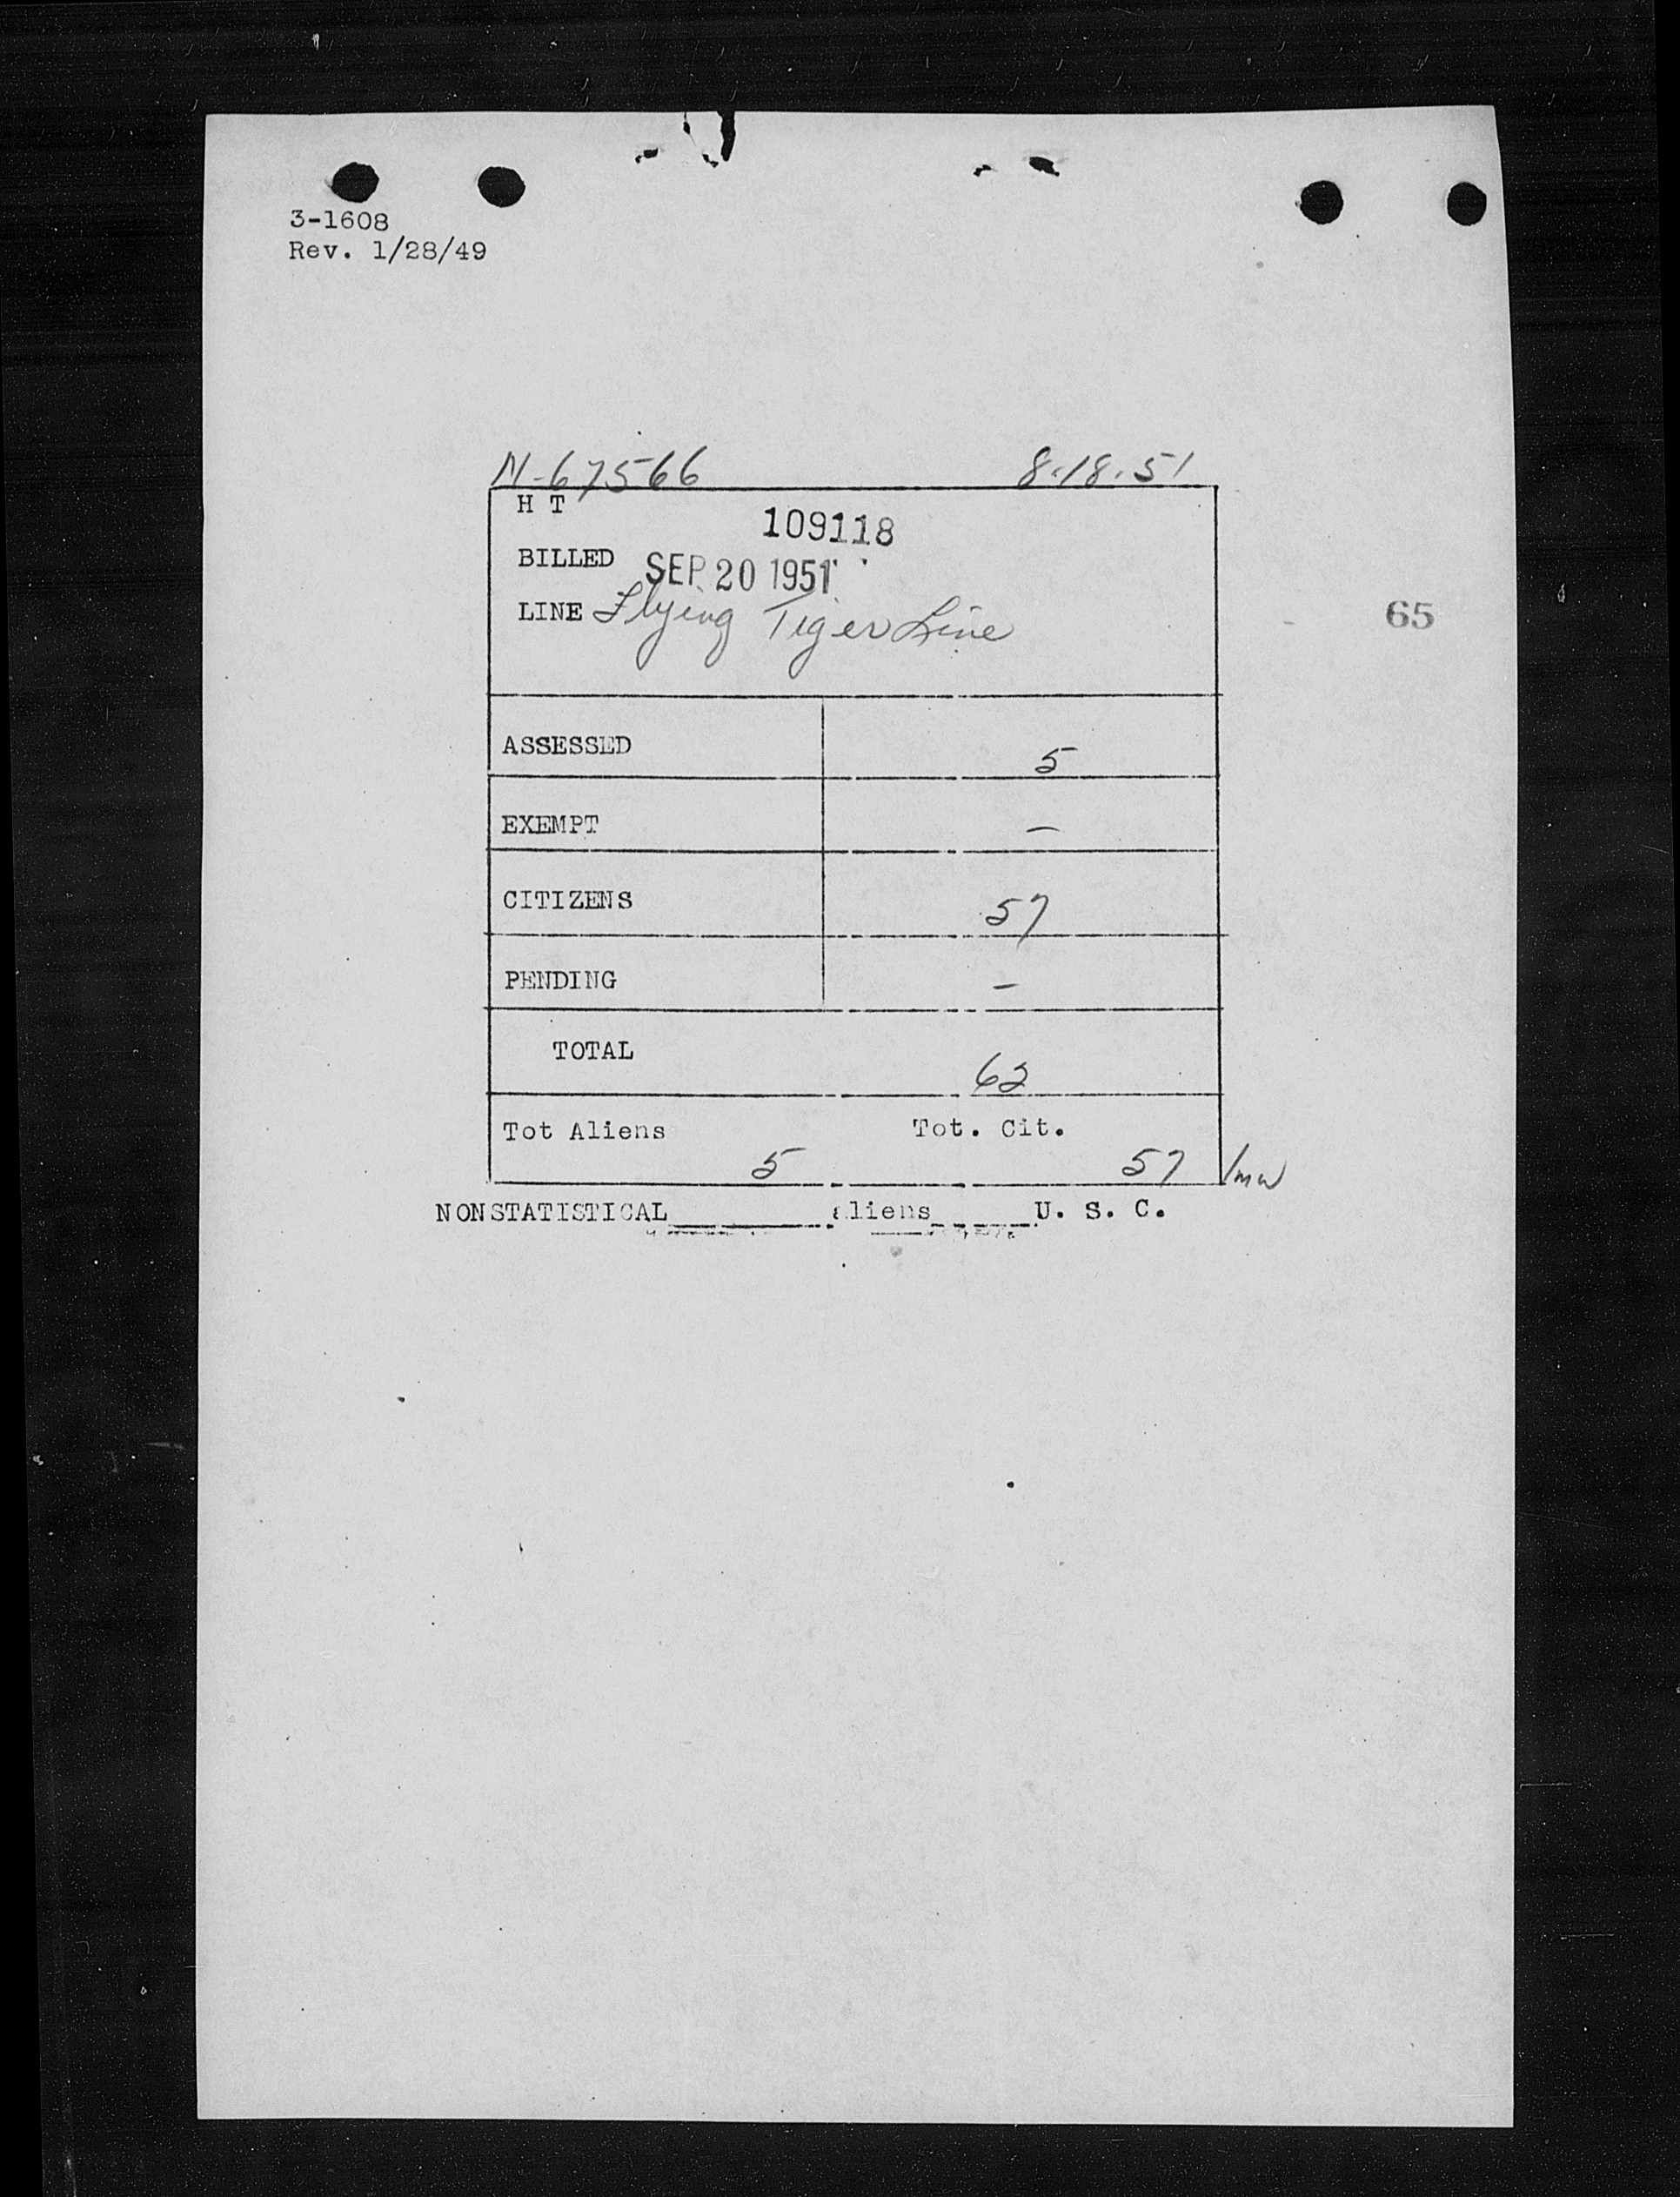 3-1608
Rev. 1/28/49
N-67566 8.18.51
H T
109118
BILLED SEP 20 1951
LINE Flying Tiger Line
65
ASSESSED 5
EXEMPT —
CITIZENS 57
PENDING —
TOTAL 62
Tot Aliens Tot. Cit.
5 57 /mw
NONSTATISTICAL aliens U. S. C.